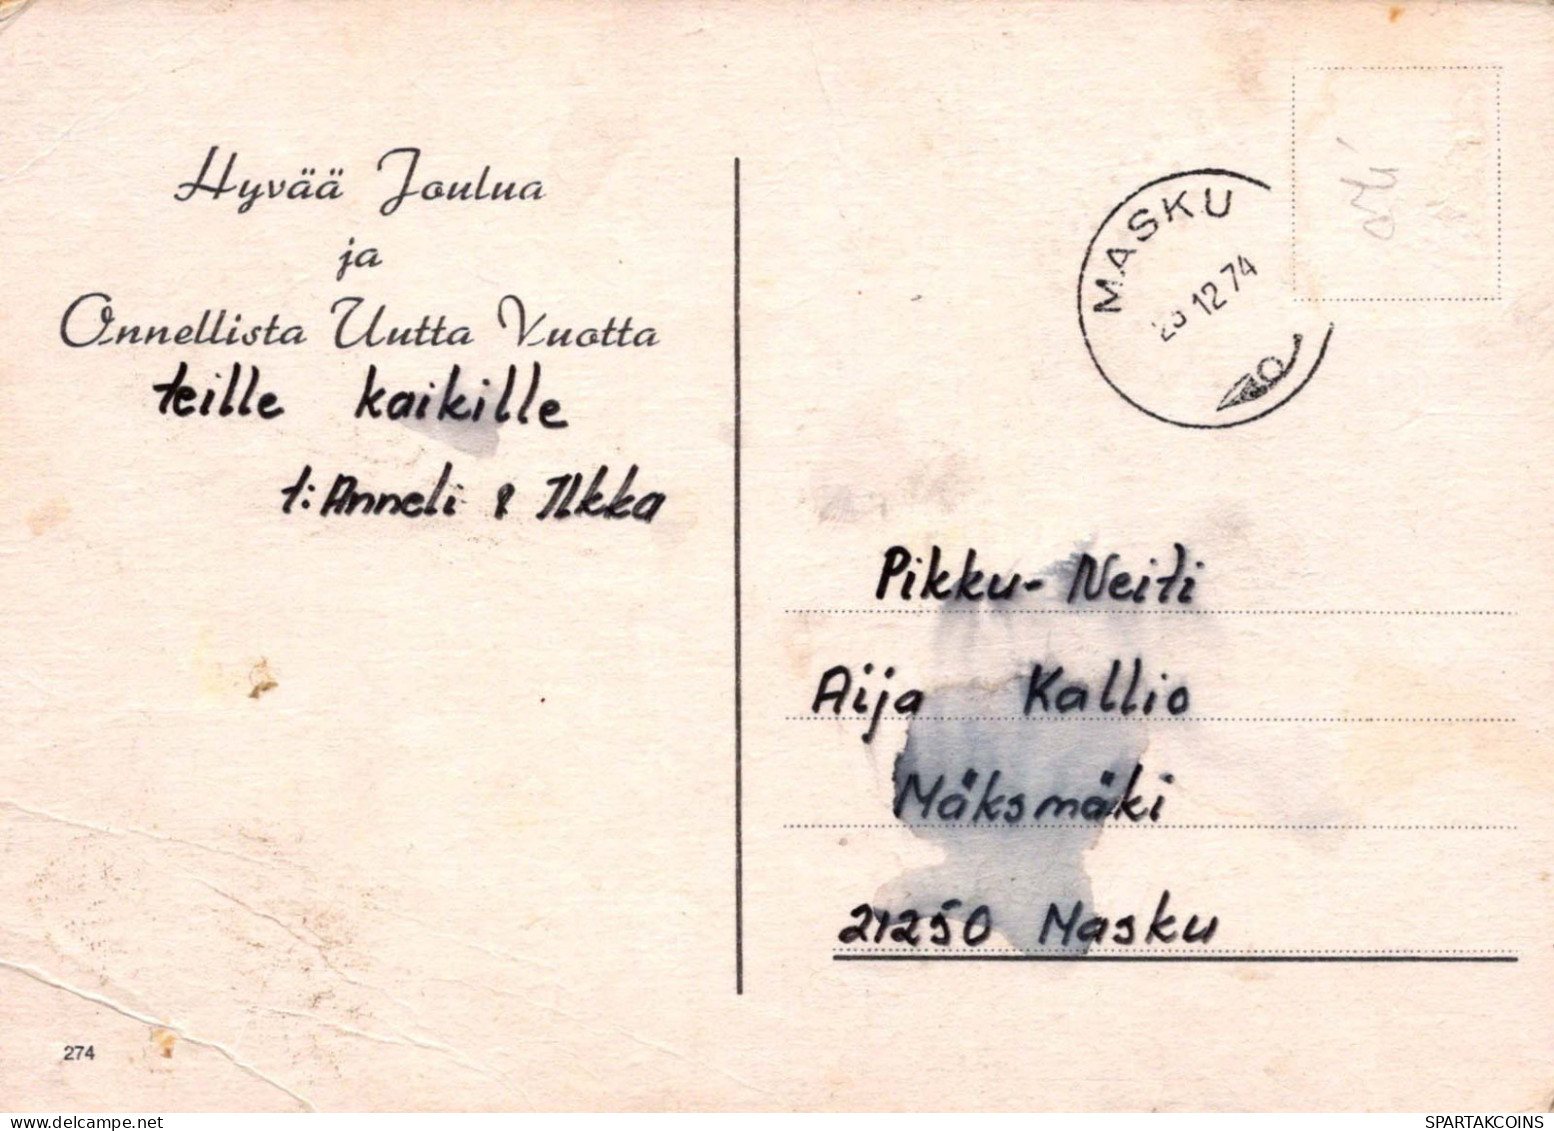 Hyvää Joulua
ja
Onnellista Uutta Vuotta
teille kaikille
t: Anneli & Ilkka
274
MASKU
12 74
Pikku-Neiti
Aija Kallio
Mäksmäki
21250 Masku
SPARTAKCOINS